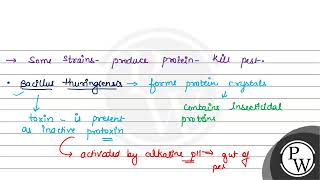 → Some strains - produce protein - kill pest.
• Bacillus thuringiensis → forms protein crystals
toxin - is present as inactive protoxin
contains insecticidal proteins
→ activated by alkaline pH → gut of pest
P
W